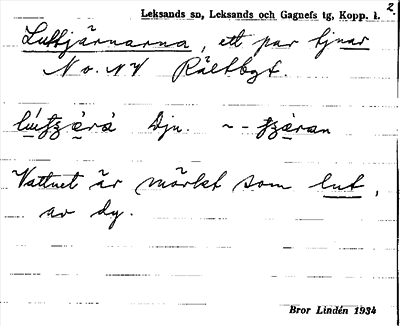 2.
Leksands sn, Leksands och Gagnefs tg, Kopp. l.
Luttjärnarna, ett par tjnar
N o. NV Rältbyt.
Djn.
Vattnet är mörkt som lut,
av dy.
Bror Lindén 1934